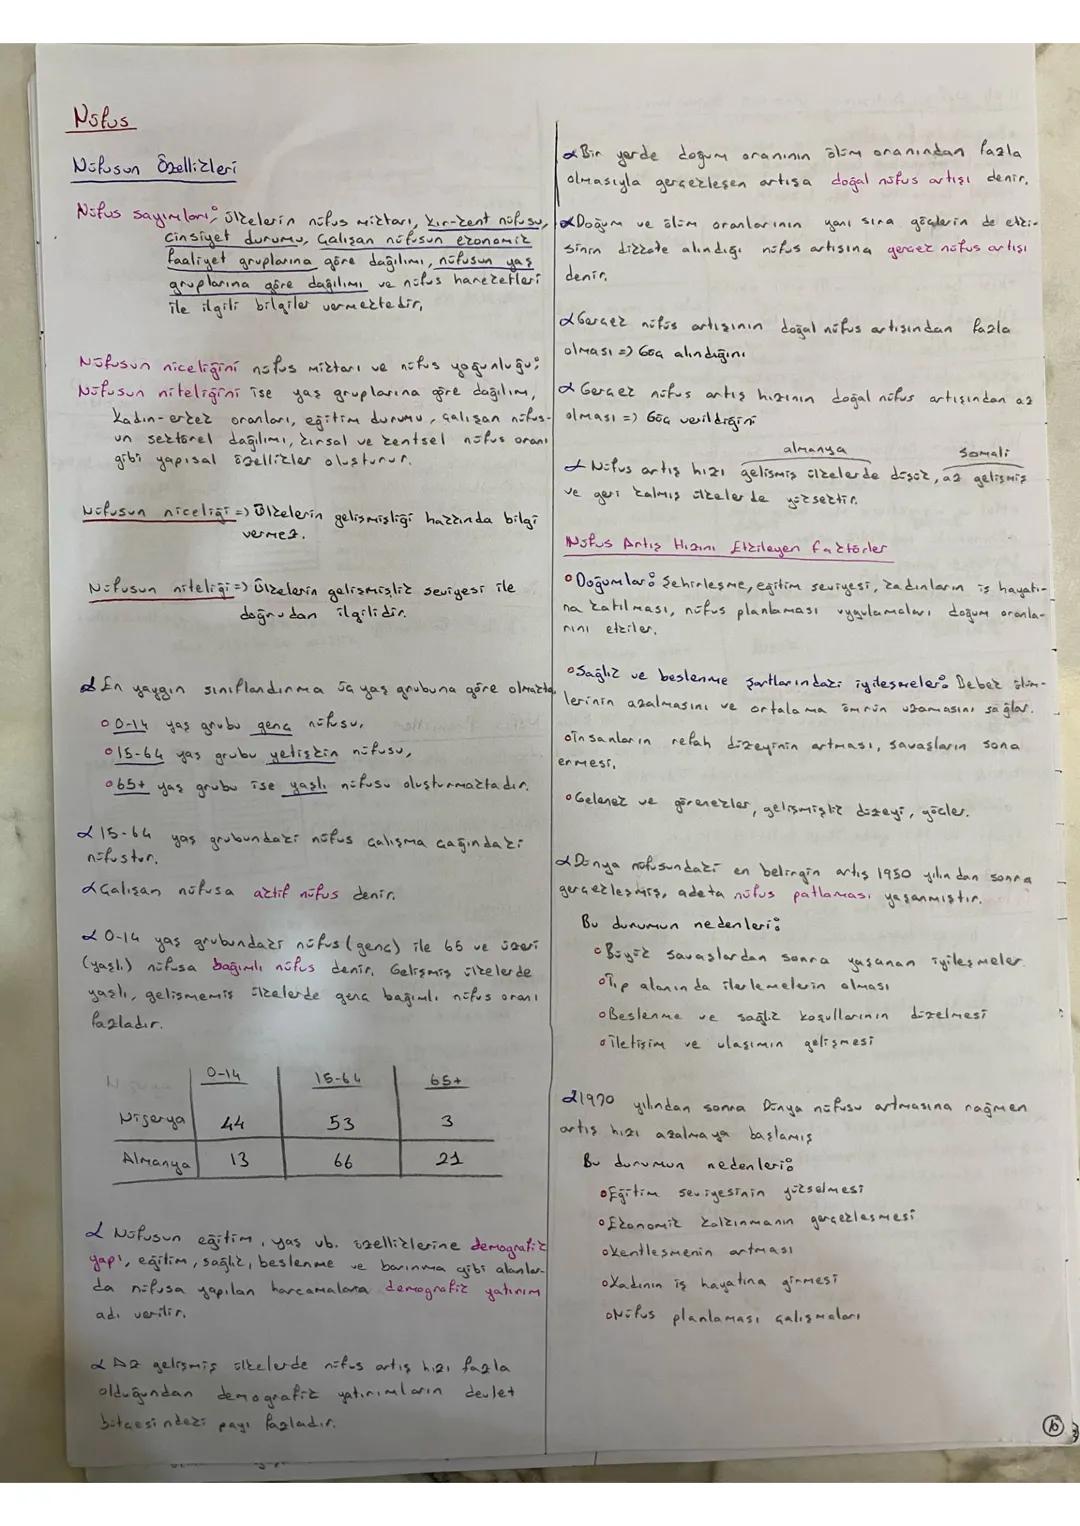 Nüfus
Nüfusun Özellikleri
Nüfus sayımları; ülkelerin nüfus miktarı, kır-kent nüfusu,
cinsiyet durumu, çalışan nüfusun ekonomik
faaliyet gruplarına göre dağılımı, nüfusun yaş
gruplarına göre dağılımı ve nüfus hareketleri
ile ilgili bilgiler vermektedir.
Nüfusun niceliğini nüfus miktarı ve nüfus yoğunluğu;
Nüfusun niteliğini ise yaş gruplarına göre dağılım,
kadın-erkek oranları, eğitim durumu, çalışan nüfus-
un sektörel dağılımı, kırsal ve kentsel nüfus oranı
gibi yapısal özellikler oluşturur.
Nüfusun niceliği => Ülkelerin gelişmişliği hakkında bilgi
vermez.
Nüfusun niteliği => Ülkelerin gelişmişlik seviyesi ile
doğrudan ilgilidir.
En yaygın sınıflandırma üç yaş grubuna göre olmakta,
0-14 yaş grubu genç nüfusu,
15-64 yaş grubu yetişkin nüfusu,
65+ yaş grubu ise yaşlı nüfusu oluşturmaktadır.
15-64 yaş grubundaki nüfus çalışma çağındaki
nüfustur.
Çalışan nüfusa aktif nüfus denir.
0-14 yaş grubundaki nüfus (genç) ile 65 ve üzeri
(yaşlı) nüfusa bağımlı nüfus denir. Gelişmiş ülkelerde
yaşlı, gelişmemiş ülkelerde genç bağımlı nüfus oranı
fazladır.
0-14 15-64 65+
Nijerya 44 53 3
Almanya 13 66 21
Nüfusun eğitim, yaş vb. özelliklerine demografik
yapı, eğitim, sağlık, beslenme ve barınma gibi alanlar-
da nüfusa yapılan harcamalara demografik yatırım
adı verilir.
Az gelişmiş ülkelerde nüfus artış hızı fazla
olduğundan demografik yatırımların devlet
bütçesindeki payı fazladır.
Bir yerde doğum oranının ölüm oranından fazla
olmasıyla gerçekleşen artışa doğal nüfus artışı denir.
Doğum ve ölüm oranlarının yanı sıra göçlerin de etki-
sinin dikkate alındığı nüfus artışına gerçek nüfus artışı
denir.
Gerçek nüfus artışının doğal nüfus artışından fazla
olması => Göç alındığını
Gerçek nüfus artış hızının doğal nüfus artışından az
olması => Göç verildiğini
almanya somali
Nüfus artış hızı gelişmiş ülkelerde düşük, az gelişmiş
ve geri kalmış ülkelerde yüksektir.
Nüfus Artış Hızını Etkileyen Faktörler
Doğumlar: Şehirleşme, eğitim seviyesi, kadınların iş hayatı-
na katılması, nüfus planlaması uygulamaları doğum oranla-
rını etkiler.
Sağlık ve beslenme şartlarındaki iyileşmeler: Bebek ölüm-
lerinin azalmasını ve ortalama ömrün uzamasını sağlar.
İnsanların refah düzeyinin artması, savaşların sona
ermesi,
Gelenek ve görenekler, gelişmişlik düzeyi, göçler.
Dünya nüfusundaki en belirgin artış 1950 yılından sonra
gerçekleşmiş, adeta nüfus patlaması yaşanmıştır.
Bu durumun nedenleri:
Büyük savaşlardan sonra yaşanan iyileşmeler
Tıp alanında ilerlemelerin olması
Beslenme ve sağlık koşullarının düzelmesi
İletişim ve ulaşımın gelişmesi
1970 yılından sonra Dünya nüfusu artmasına rağmen
artış hızı azalmaya başlamış
Bu durumun nedenleri:
Eğitim seviyesinin yükselmesi
Ekonomik kalkınmanın gerçekleşmesi
Kentleşmenin artması
Kadının iş hayatına girmesi
Nüfus planlaması çalışmaları